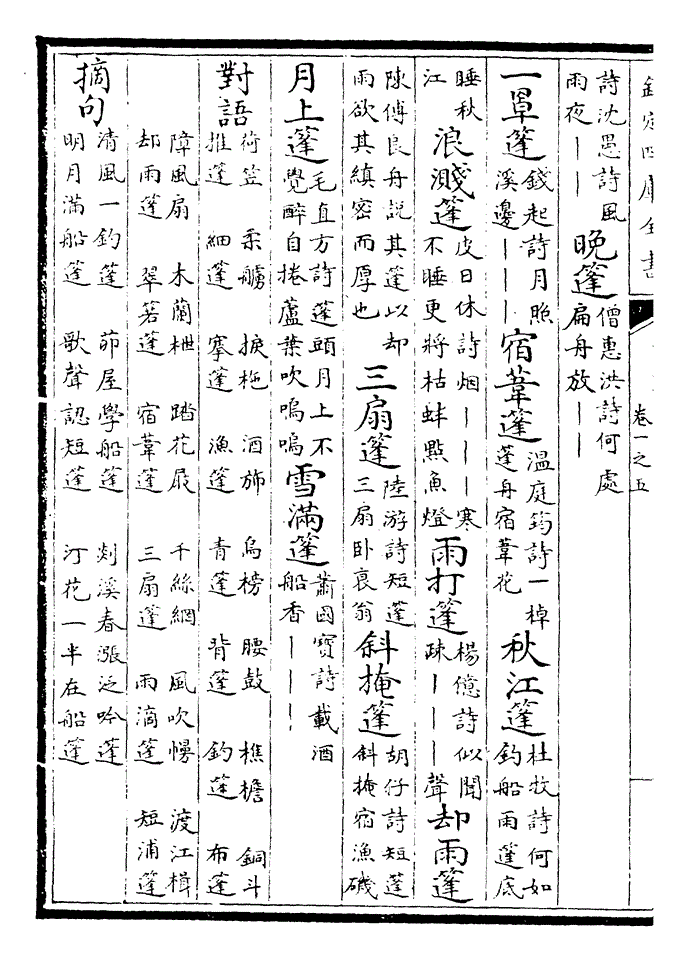 欽定四庫全書
卷一之五
詩沈愚詩風
雨夜｜｜
晚篷
僧惠洪詩何處
扁舟放｜｜
一草篷
錢起詩月照
溪邊｜｜｜
宿葦篷
溫庭筠詩一棹
篷舟宿葦花
秋江篷
杜牧詩何如
釣船雨篷底
睡秋
江
浪濺篷
皮日休詩烟｜｜｜寒
不睡更將枯蚌點魚燈
雨打篷
楊億詩似聞
疎｜｜｜聲
却雨篷
陳傅良舟說其篷以却
雨欲其縝密而厚也
三扇篷
陸游詩短篷
三扇卧衰翁
斜掩篷
胡仔詩短篷
斜掩宿漁磯
月上篷
毛直方詩篷頭月上不
覺醉自捲蘆葉吹嗚嗚
雪滿篷
蕭國寶詩載酒
船香｜｜｜
對語
荷笠 柔艣 捩柂 酒斾 烏榜 腰鼓 樵檐 銅斗
推篷 細篷 搴篷 漁篷 青篷 背篷 釣篷 布篷
障風扇 木蘭枻 踏花屐 千絲網 風吹幔 渡江楫
却雨篷 翠箬篷 宿葦篷 三扇篷 雨滴篷 短浦篷
摘句
清風一釣篷 茆屋學船篷 剡溪春漲泛吟篷
明月滿船篷 歌聲認短篷 汀花一半在船篷